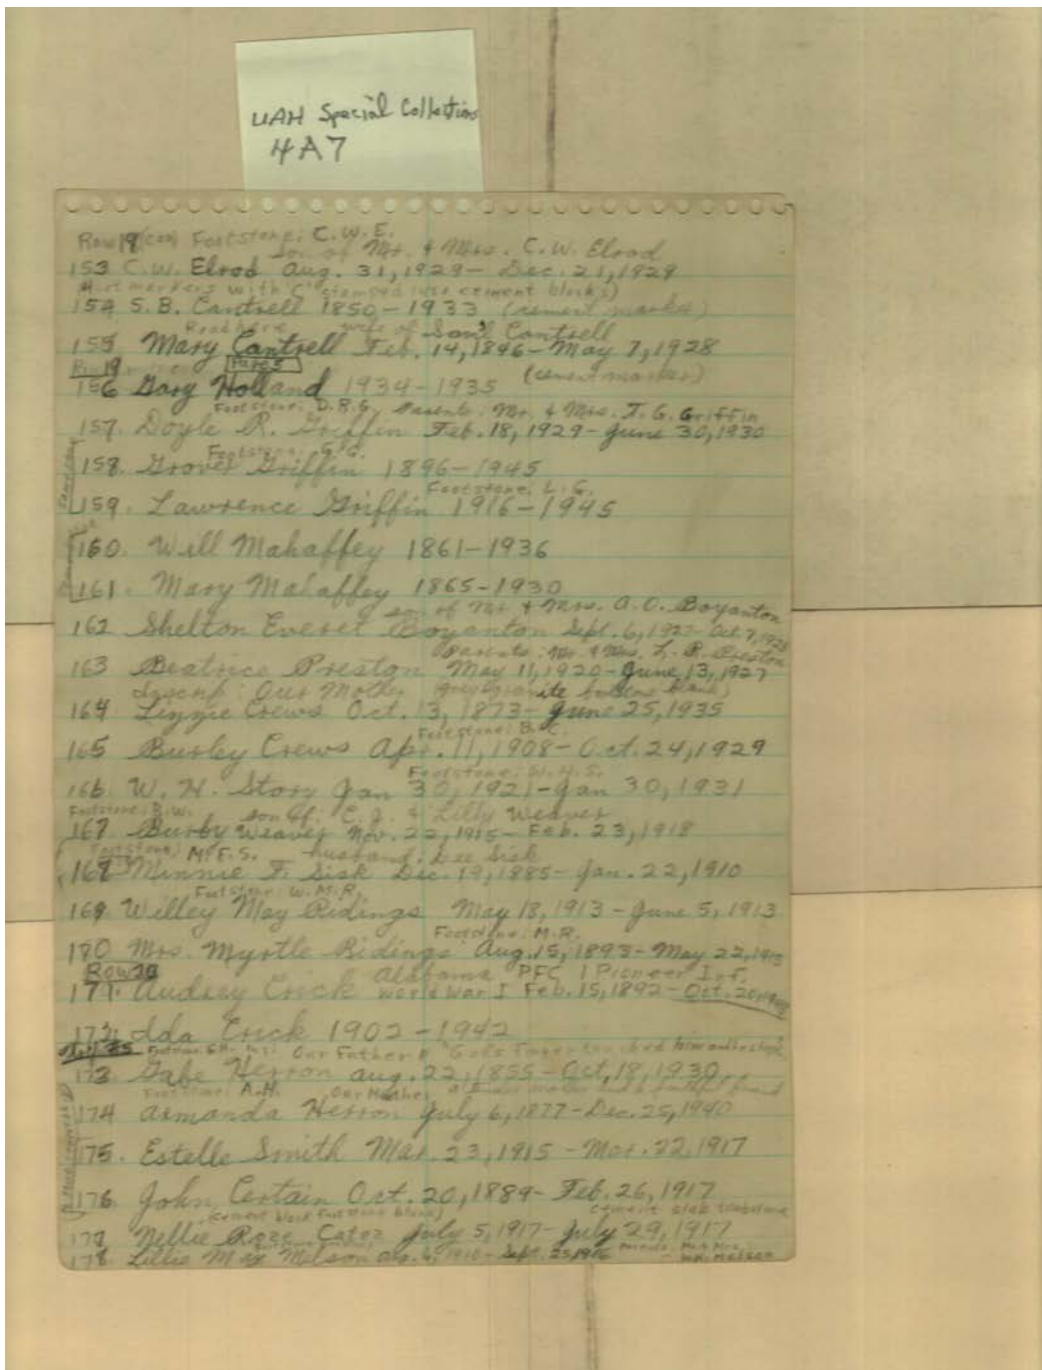 UAH Special Collections
4A7
Row 18 (con) Footstone: C.W.E.
son of Mr. & Mrs. C.W. Elrod
153 C.W. Elrod Aug. 31, 1929 - Dec. 21, 1929
markers with "C" stamped into cement blocks)
154 S.B. Cantrell 1850 - 1933 (cement marker)
wife of Sam'l Cantrell
155 Mary Cantrell Feb. 14, 1846 - May 7, 1928
Row 19
156 Gary Holland 1934 - 1935 (cement marker)
Footstone: D.R.G. Parents: Mr. & Mrs. T. G. Griffin
157. Doyle R. Griffin Feb. 18, 1929 - June 30, 1930
Footstone: G.G.
158. Grover Griffin 1896 - 1945
Footstone: L.G.
159. Lawrence Griffin 1916 - 1945
160. Will Mahaffey 1861 - 1936
161. Mary Mahaffey 1865 - 1930
son of Mr & Mrs. A.O. Boyanton
162 Shelton Everet Boyanton Sept. 6, 1927 - Oct. 7, 1928
Parents: Mr. & Mrs. L. R. Preston
163 Beatrice Preston May 11, 1920 - June 13, 1927
Inscrip: Our Mother
164 Lizzie Crews Oct. 13, 1873 - June 25, 1935
Footstone: B.C.
165 Burley Crews Apr. 11, 1908 - Oct. 24, 1929
Footstone: W.H.S.
166 W. H. Story Jan 30, 1921 - Jan 30, 1931
Footstone: B.W. son of: C. J. & Lilly Weaver
167 Burby Weaver Nov. 22, 1915 - Feb. 23, 1918
Footstone: M.F.S. husband: Lee Sisk
168 Minnie F. Sisk Dec. 19, 1885 - Jan. 22, 1910
Footstone: W.M.R.
169 Willey May Ridings May 18, 1913 - June 5, 1913
Footstone: M.R.
170 Mrs. Myrtle Ridings Aug. 15, 1893 - May 22, 1913
Row 20 Alabama PFC 1 Pioneer Inf.
171. Audrey Crick World War I Feb. 15, 1892 - Oct. 20,
172. Ida Crick 1902 - 1942
Footstone: G.H. Our Father "Gods finger touched him and he slept"
173. Gabe Herron Aug. 22, 1855 - Oct. 18, 1930
Footstone: A.H. Our Mother
174 Armanda Herron July 6, 1877 - Dec. 25, 1940
175. Estelle Smith Mar. 23, 1915 - Mar. 22, 1917
176. John Certain Oct. 20, 1889 - Feb. 26, 1917
(cement block footstone blank) cement slab tombstone
177 Nellie Roze Cator July 5, 1917 - July 29, 1917
178. Lillie May Melson Aug. 6, 1910 - Sept. 25, 1916 Parents: Mr & Mrs. W.H. Melson